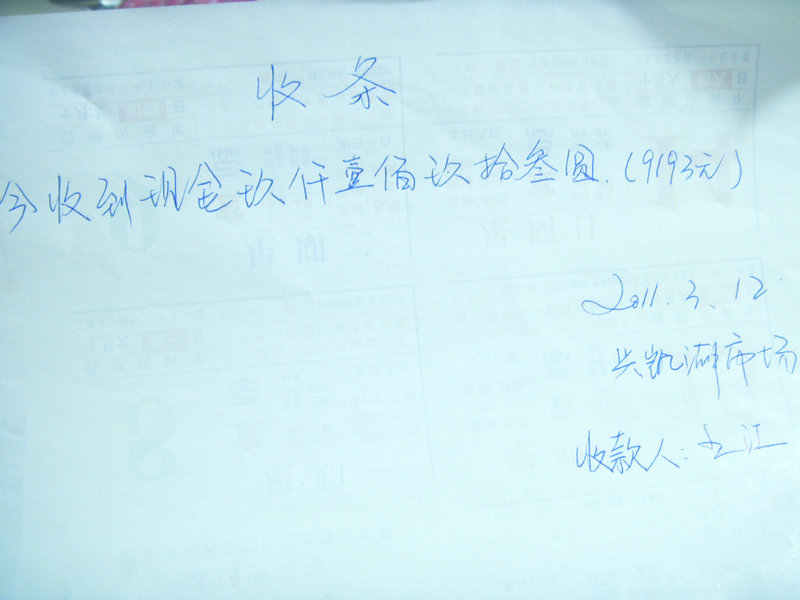 收条
今收到现金玖仟壹佰玖拾叁圆.(9193元)
2011.3.12.
兴凯湖市场
收款人:江